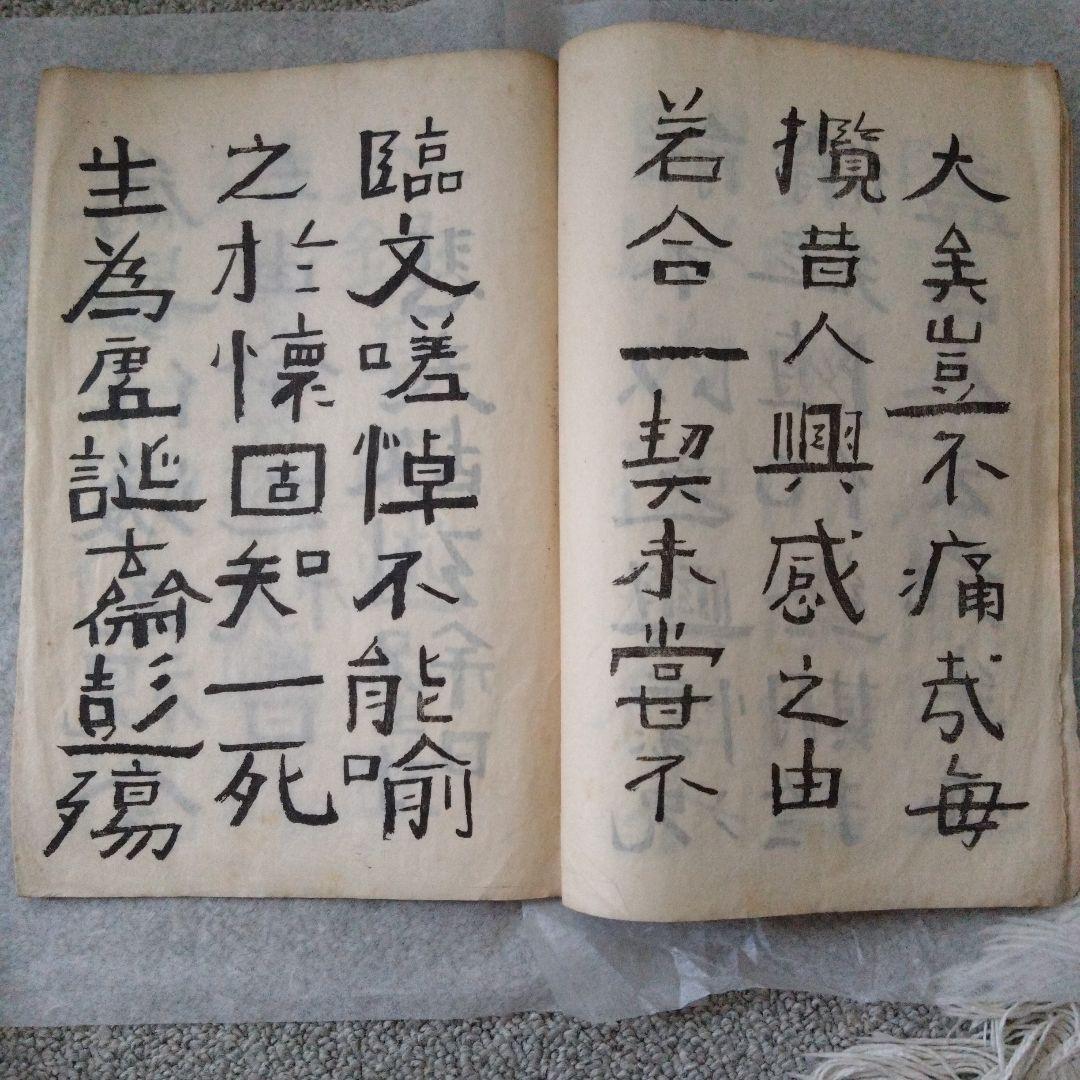 大矣豈不痛哉每
攬昔人興感之由
若合一契未嘗不
臨文嗟悼不能喻
之於懷固知一死
生為虛誕齊彭殤